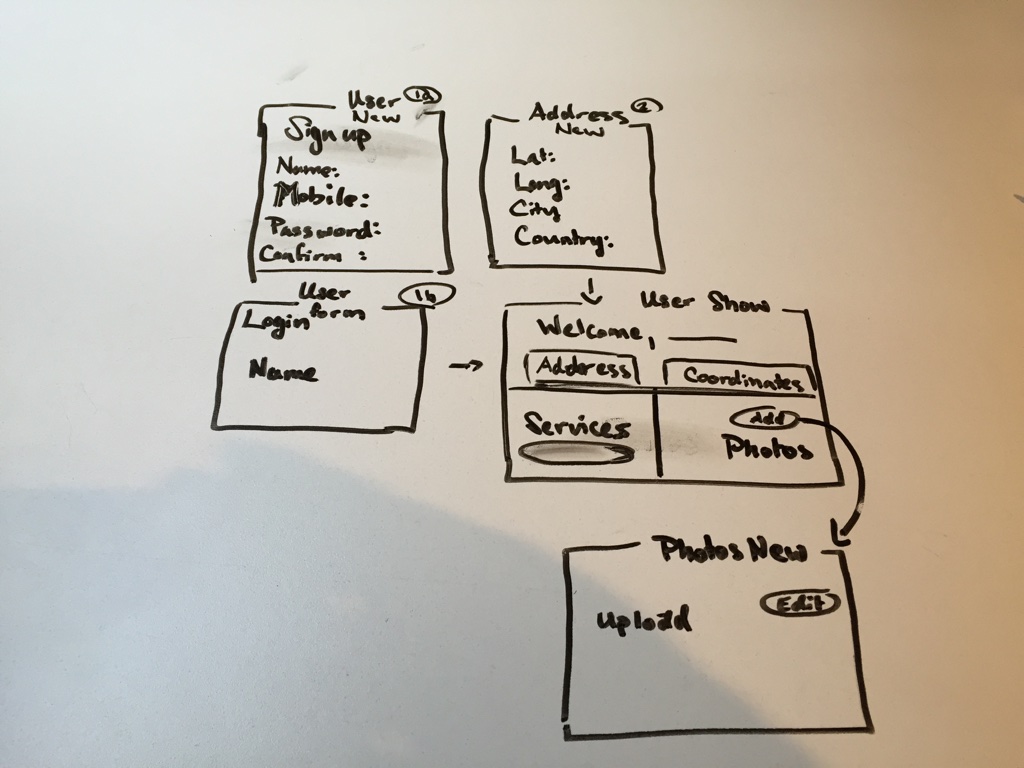 User 1a
New
Sign up
Name:
Mobile:
Password:
Confirm :
Address 2
New
Lat:
Long:
City
Country:
User 1b
form
Login
Name
User Show
Welcome, ____
Address
Coordinates
Services
Add
Photos
Photos New
Edit
Upload